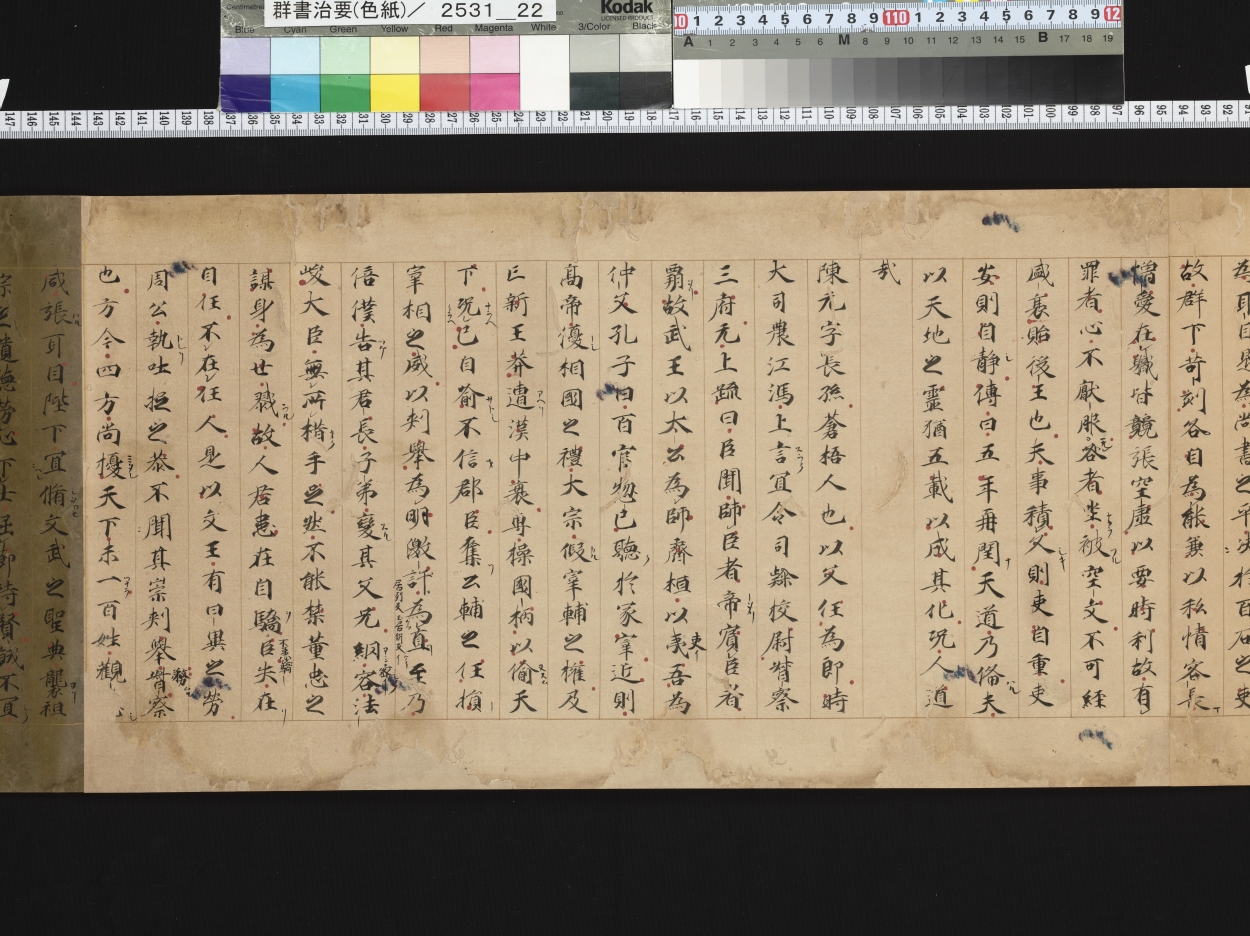 群書治要(色紙)／ 2531＿22
Kodak
LICENSED PRODUCT
Blue Cyan Green Yellow Red Magenta White 3/Color Black
為耳目是為尚書之平决於百石之吏
故群下苛刻各自為能兼以私情容長
憎愛在職皆競張空虛以要時利故有
罪者心不猒服咎者坐被空文不可経
盛衰貽後王也夫事積久則吏自重吏
安則自静傳曰五年再閏天道乃俻夫
以天地之靈猶五載以成其化況人道
㢤
陳元字長孫蒼梧人也以父任為郎時
大司農江馮上言宜令司隸校尉督察
三府元上䟽曰臣聞師臣者帝賓臣者
霸故武王以太公為師齊桓以夷吾為
仲父孔子曰百官惣己聽於冢宰近則
高帝優相國之禮大宗假宰輔之權及
巨新王莽遭漢中衰專操國柄以偷天
下況己自喻不信郡臣奪公輔之任損
宰相之威以刾舉為明激訐為直至乃
倍僕告其君長子弟變其父兄網容法
峻大臣無所楷手之然不能禁董忠之
謀身為世戮故人君患在自驕臣失在
自任不在任人是以文王有日昃之勞
周公執吐握之恭不聞其崇刾舉督察
也方今四方尚擾天下未一百姓觀
咸張耳目陛下宜脩文武之聖典襲祖
宗之遺德勞心下士屈節待賢誠不宜